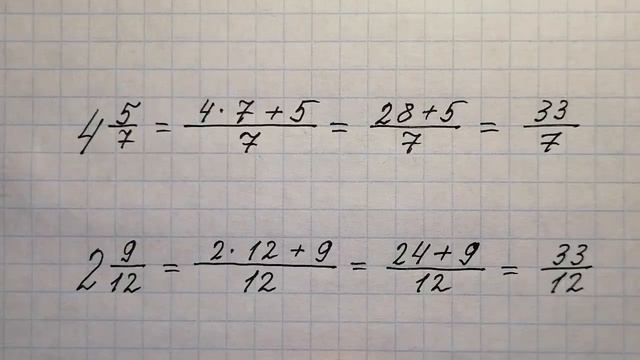 4 5/7 = (4·7+5)/7 = (28+5)/7 = 33/7
2 9/12 = (2·12+9)/12 = (24+9)/12 = 33/12